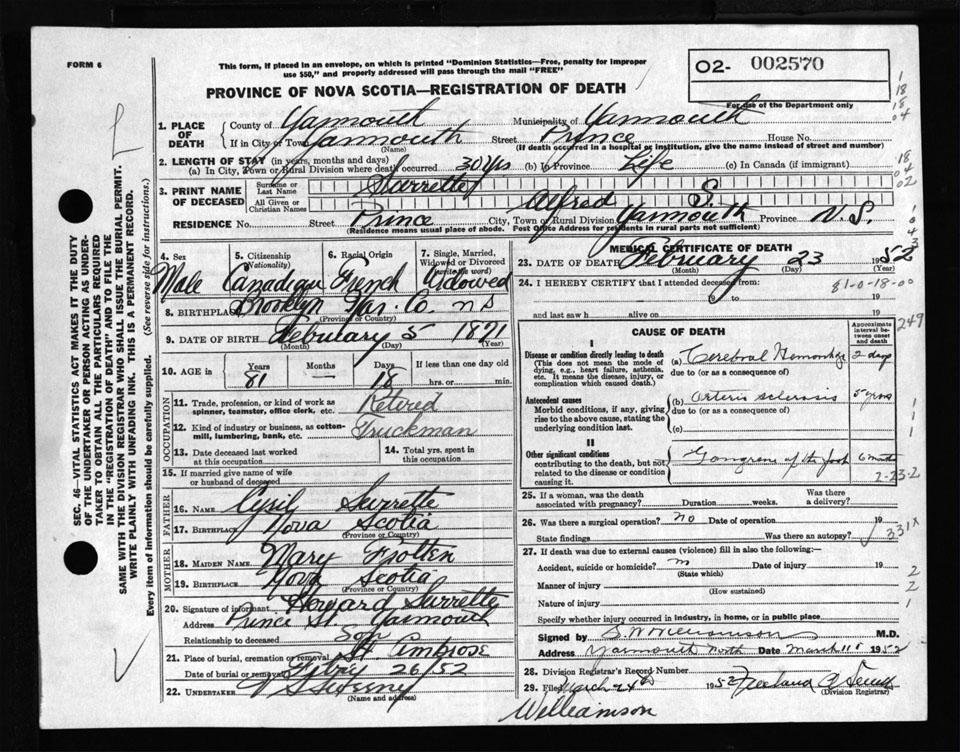 FORM 6
This form, if placed in an envelope, on which is printed "Dominion Statistics—Free, penalty for improper
use $50," and properly addressed will pass through the mail "FREE"
O2- 002570
For use of the Department only
PROVINCE OF NOVA SCOTIA—REGISTRATION OF DEATH
1. PLACE OF DEATH
County of Yarmouth Municipality of Yarmouth
If in City, Town Yarmouth (Name) Street Prince House No.
(If death occurred in a hospital or institution, give the name instead of street and number)
2. LENGTH OF STAY (in years, months and days)
(a) In City, Town or Rural Division where death occurred 30 yrs (b) In Province Life (c) In Canada (if immigrant)
3. PRINT NAME OF DECEASED
Surname or Last Name Surrette
All Given or Christian Names Alfred S.
RESIDENCE No. Street Prince City, Town or Rural Division Yarmouth Province N.S.
(Residence means usual place of abode. Post Office Address for residents in rural parts not sufficient)
4. Sex Male
5. Citizenship (Nationality) Canadian
6. Racial Origin French
7. Single, Married, Widowed or Divorced (write the word) Widowed
8. BIRTHPLACE Brooklyn Yar. Co. N S
(Province or Country)
9. DATE OF BIRTH Febuary 5 1871
(Month) (Day) (Year)
10. AGE in Years 81 Months — Days 18 If less than one day old hrs. or min.
OCCUPATION
11. Trade, profession, or kind of work as spinner, teamster, office clerk, etc. Retired
12. Kind of industry or business, as cotton-mill, lumbering, bank, etc. Truckman
13. Date deceased last worked at this occupation
14. Total yrs. spent in this occupation
15. If married give name of wife or husband of deceased
FATHER
16. Name Cyril Surrette
17. Birthplace Nova Scotia
(Province or Country)
MOTHER
18. Maiden Name Mary
19. Birthplace Nova Scotia
(Province or Country)
20. Signature of informant Howard Surrette
Address Prince St. Yarmouth
Relationship to deceased Son
21. Place of burial, cremation or removal St Ambrose
Date of burial or removal 26/52
22. UNDERTAKER V S Sweeny
(Name and address)
MEDICAL CERTIFICATE OF DEATH
23. DATE OF DEATH February 23 1952
(Month) (Day) (Year)
24. I HEREBY CERTIFY that I attended deceased from: 81-0-18-00
19 to 19
and last saw h alive on 19
CAUSE OF DEATH
Approximate interval between onset and death
I
Disease or condition directly leading to death
(This does not mean the mode of dying, e.g., heart failure, asthenia, etc. It means the disease, injury, or complication which caused death.)
(a) Cerebral Hemorrhage 2 days
due to (or as a consequence of)
Antecedent causes
Morbid conditions, if any, giving rise to the above cause, stating the underlying condition last.
(b) Arterio sclerosis 5 years
due to (or as a consequence of)
(c)
II
Other significant conditions
contributing to the death, but not related to the disease or condition causing it.
Gangrene of the foot 6 months
2-23-2
25. If a woman, was the death associated with pregnancy? Duration weeks. Was there a delivery?
26. Was there a surgical operation? no Date of operation 19
State findings Was there an autopsy?
331X
27. If death was due to external causes (violence) fill in also the following:—
Accident, suicide or homicide? Date of injury 19
(State which)
Manner of injury
(How sustained)
Nature of injury
Specify whether injury occurred in industry, in home, or in public place
Signed by S. W. Williamson M.D.
Address Yarmouth North Date March 11 1952
28. Division Registrar's Record Number
29. Filed March 24th 1952
(Division Registrar)
Williamson
SEC. 46—VITAL STATISTICS ACT MAKES IT THE DUTY
OF THE UNDERTAKER OR PERSON ACTING AS UNDER-
TAKER TO OBTAIN ALL THE PARTICULARS REQUIRED
IN THE "REGISTRATION OF DEATH" AND TO FILE THE
SAME WITH THE DIVISION REGISTRAR WHO SHALL ISSUE THE BURIAL PERMIT.
WRITE PLAINLY WITH UNFADING INK. THIS IS A PERMANENT RECORD.
Every item of information should be carefully supplied. (See reverse side for instructions.)
1
18
18
04
18
04
02
249
1
1
1
2
2
1